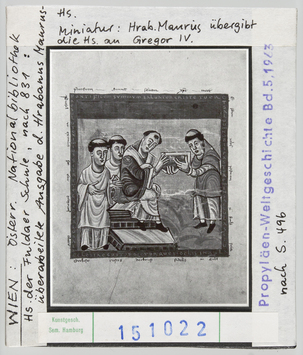 Hs.
Miniatur: Hrab. Maurus übergibt
die Hs. an Gregor IV.
WIEN: Österr. Nationalbibliothek
Hs. der Fuldaer Schule, nach 831:
überarbeitete Ausgabe d. Hrabanus Maurus-
Propyläen-Weltgeschichte Bd.5, 1963
nach S. 496
Kunstgesch.
Sem. Hamburg
151022